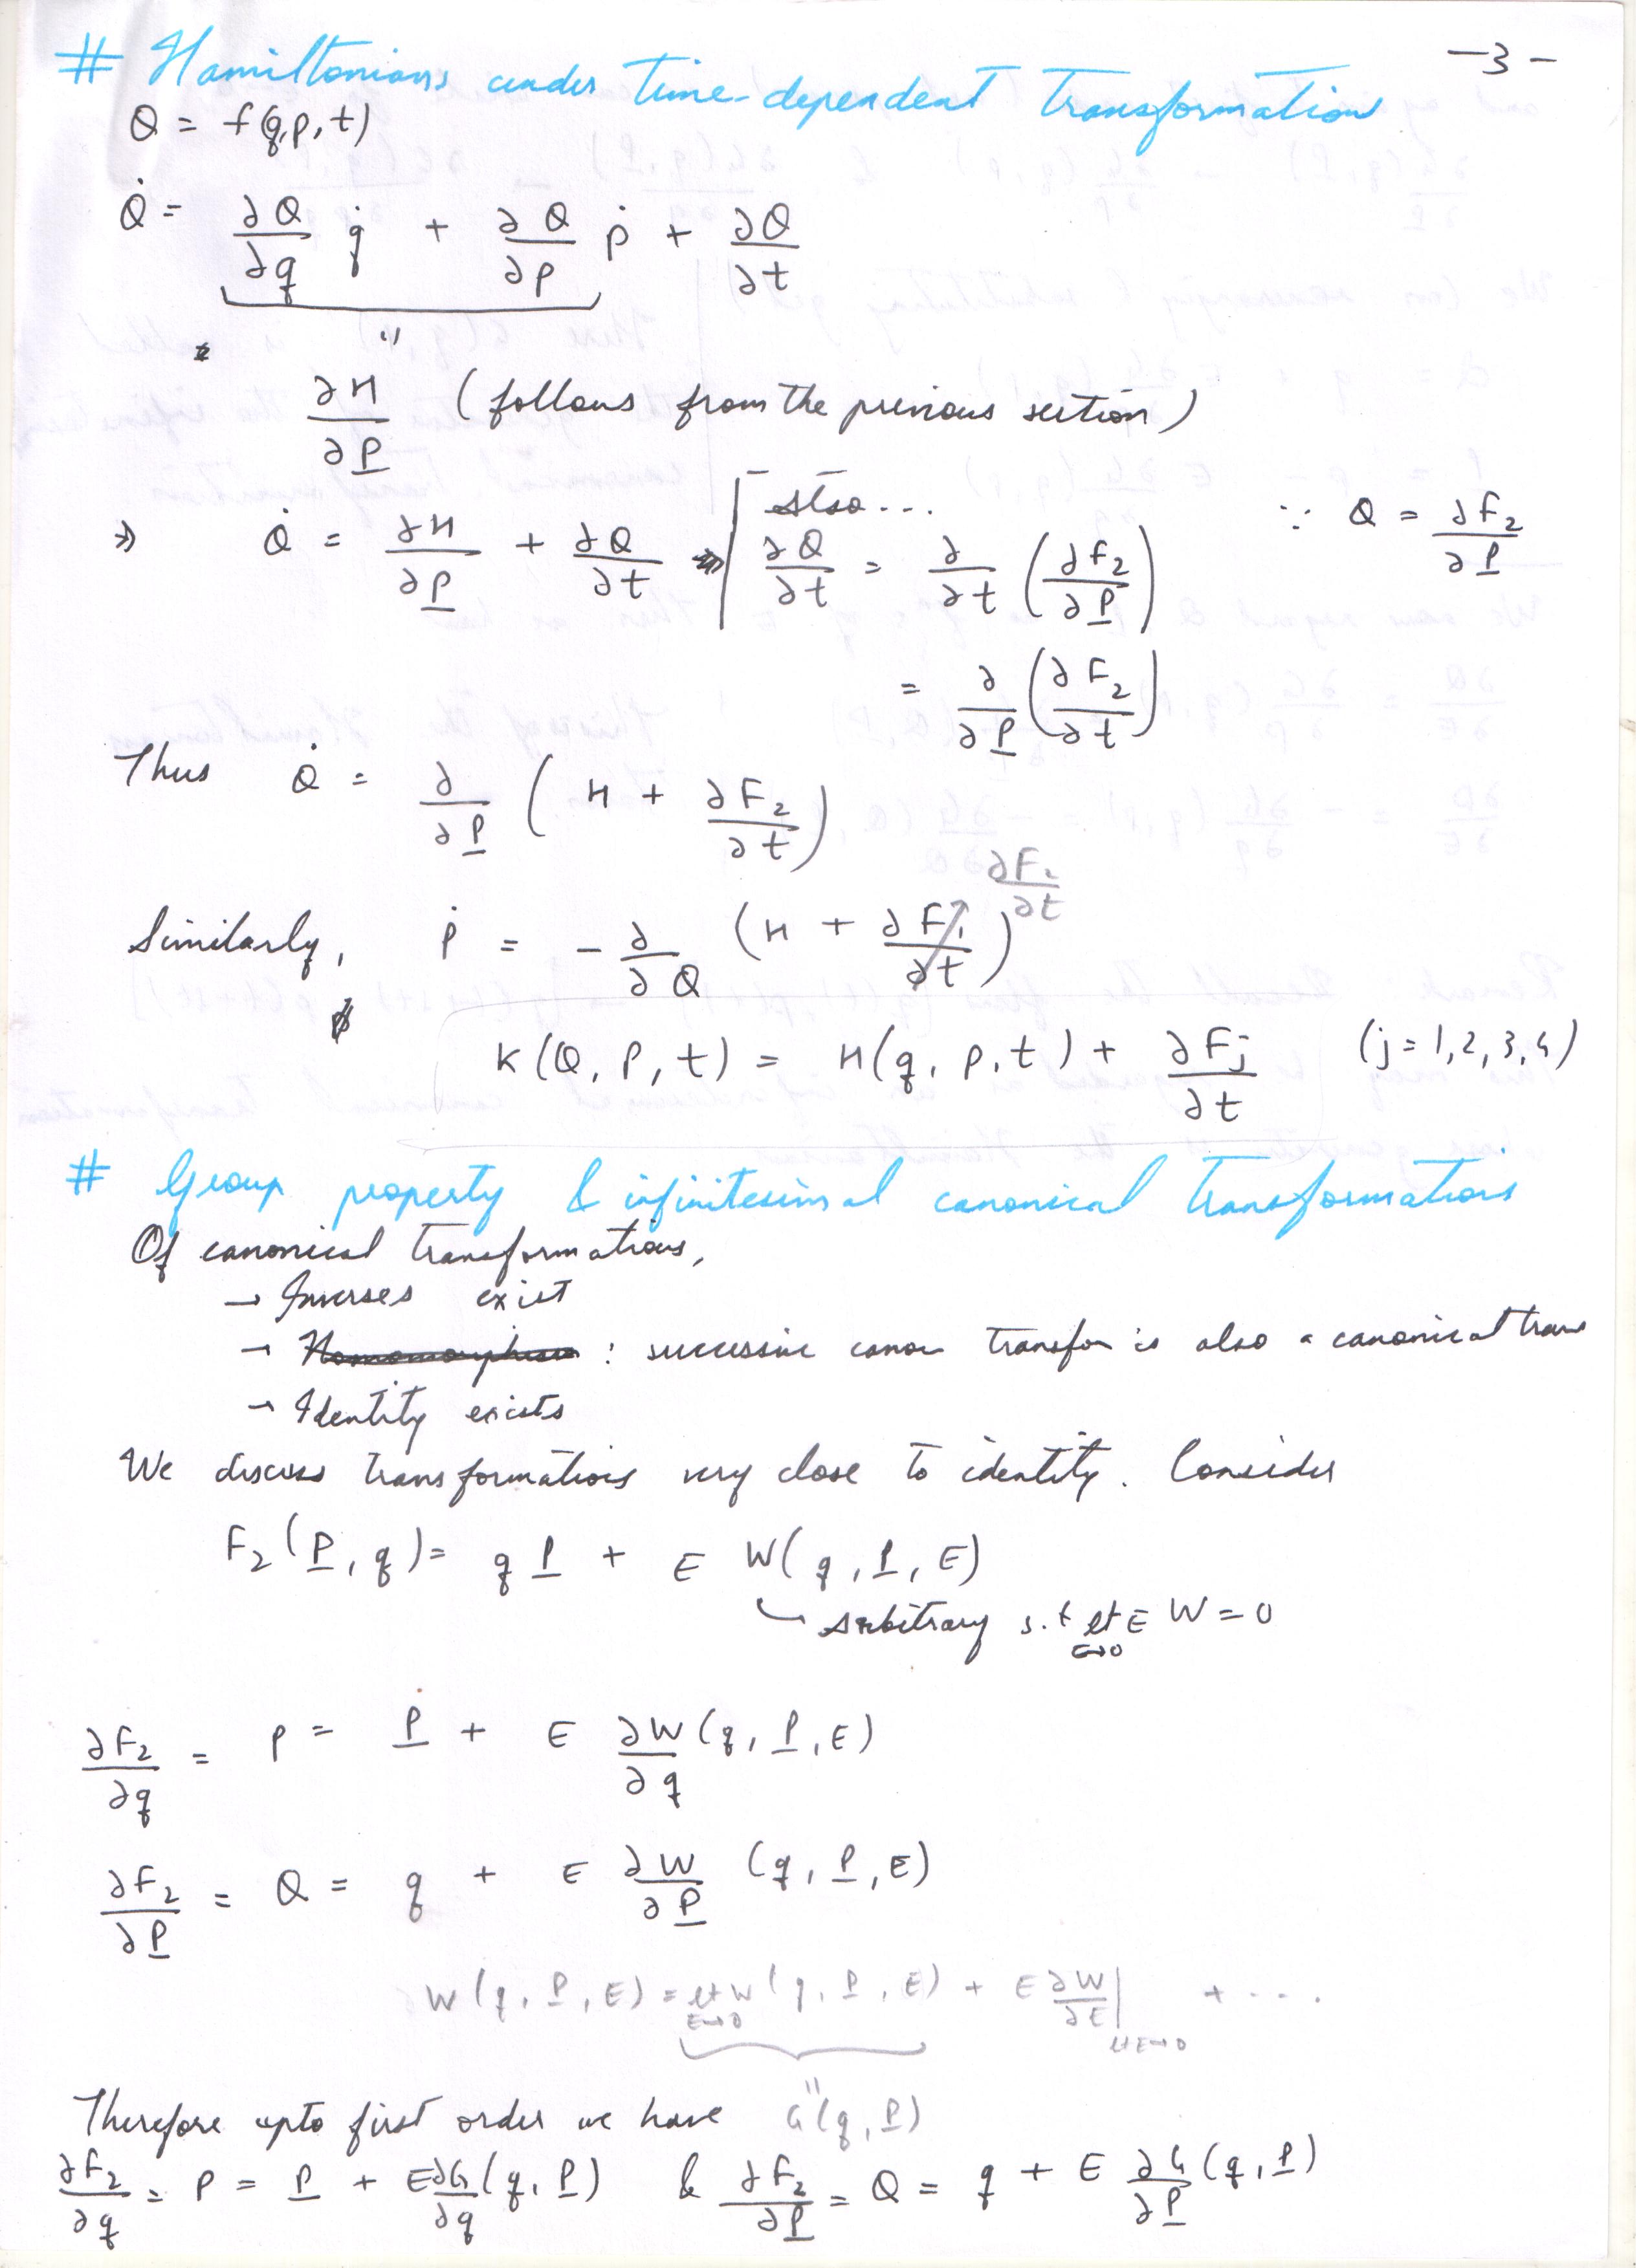 -3-
# Hamiltonians under time-dependent transformations
Q = f(q,p,t)
Q̇ = ∂Q/∂q q̇ + ∂Q/∂p ṗ + ∂Q/∂t
"
∂H/∂P̲ (follows from the previous section)
⇒ Q̇ = ∂H/∂P̲ + ∂Q/∂t
Also...
∂Q/∂t = ∂/∂t (∂F₂/∂P̲) ∵ Q = ∂F₂/∂P̲
= ∂/∂P̲ (∂F₂/∂t)
Thus Q̇ = ∂/∂P̲ ( H + ∂F₂/∂t )
Similarly, Ṗ = - ∂/∂Q (H + ∂F₁/∂t) ∂F₂/∂t
K(Q, P, t) = H(q, p, t) + ∂Fj/∂t (j=1,2,3,4)
# Group property & infinitesimal canonical transformations
Of canonical transformations,
→ Inverses exist
→ Homomorphism : successive canon transfor is also a canonical trans
→ Identity exists
We discuss transformations very close to identity. Consider
F₂(P̲, q) = q P̲ + ε W(q, P̲, ε)
↳ Arbitrary s.t lt ε→0 ε W = 0
∂F₂/∂q = p = P̲ + ε ∂W/∂q (q, P̲, ε)
∂F₂/∂P̲ = Q = q + ε ∂W/∂P̲ (q, P̲, ε)
W(q, P̲, ε) = lt ε→0 W(q, P̲, ε) + ε ∂W/∂ε | lt ε→0 + ...
"
Therefore upto first order we have G(q, P̲)
∂F₂/∂q = p = P̲ + ε ∂G/∂q (q, P̲) & ∂F₂/∂P̲ = Q = q + ε ∂G/∂P̲ (q, P̲)